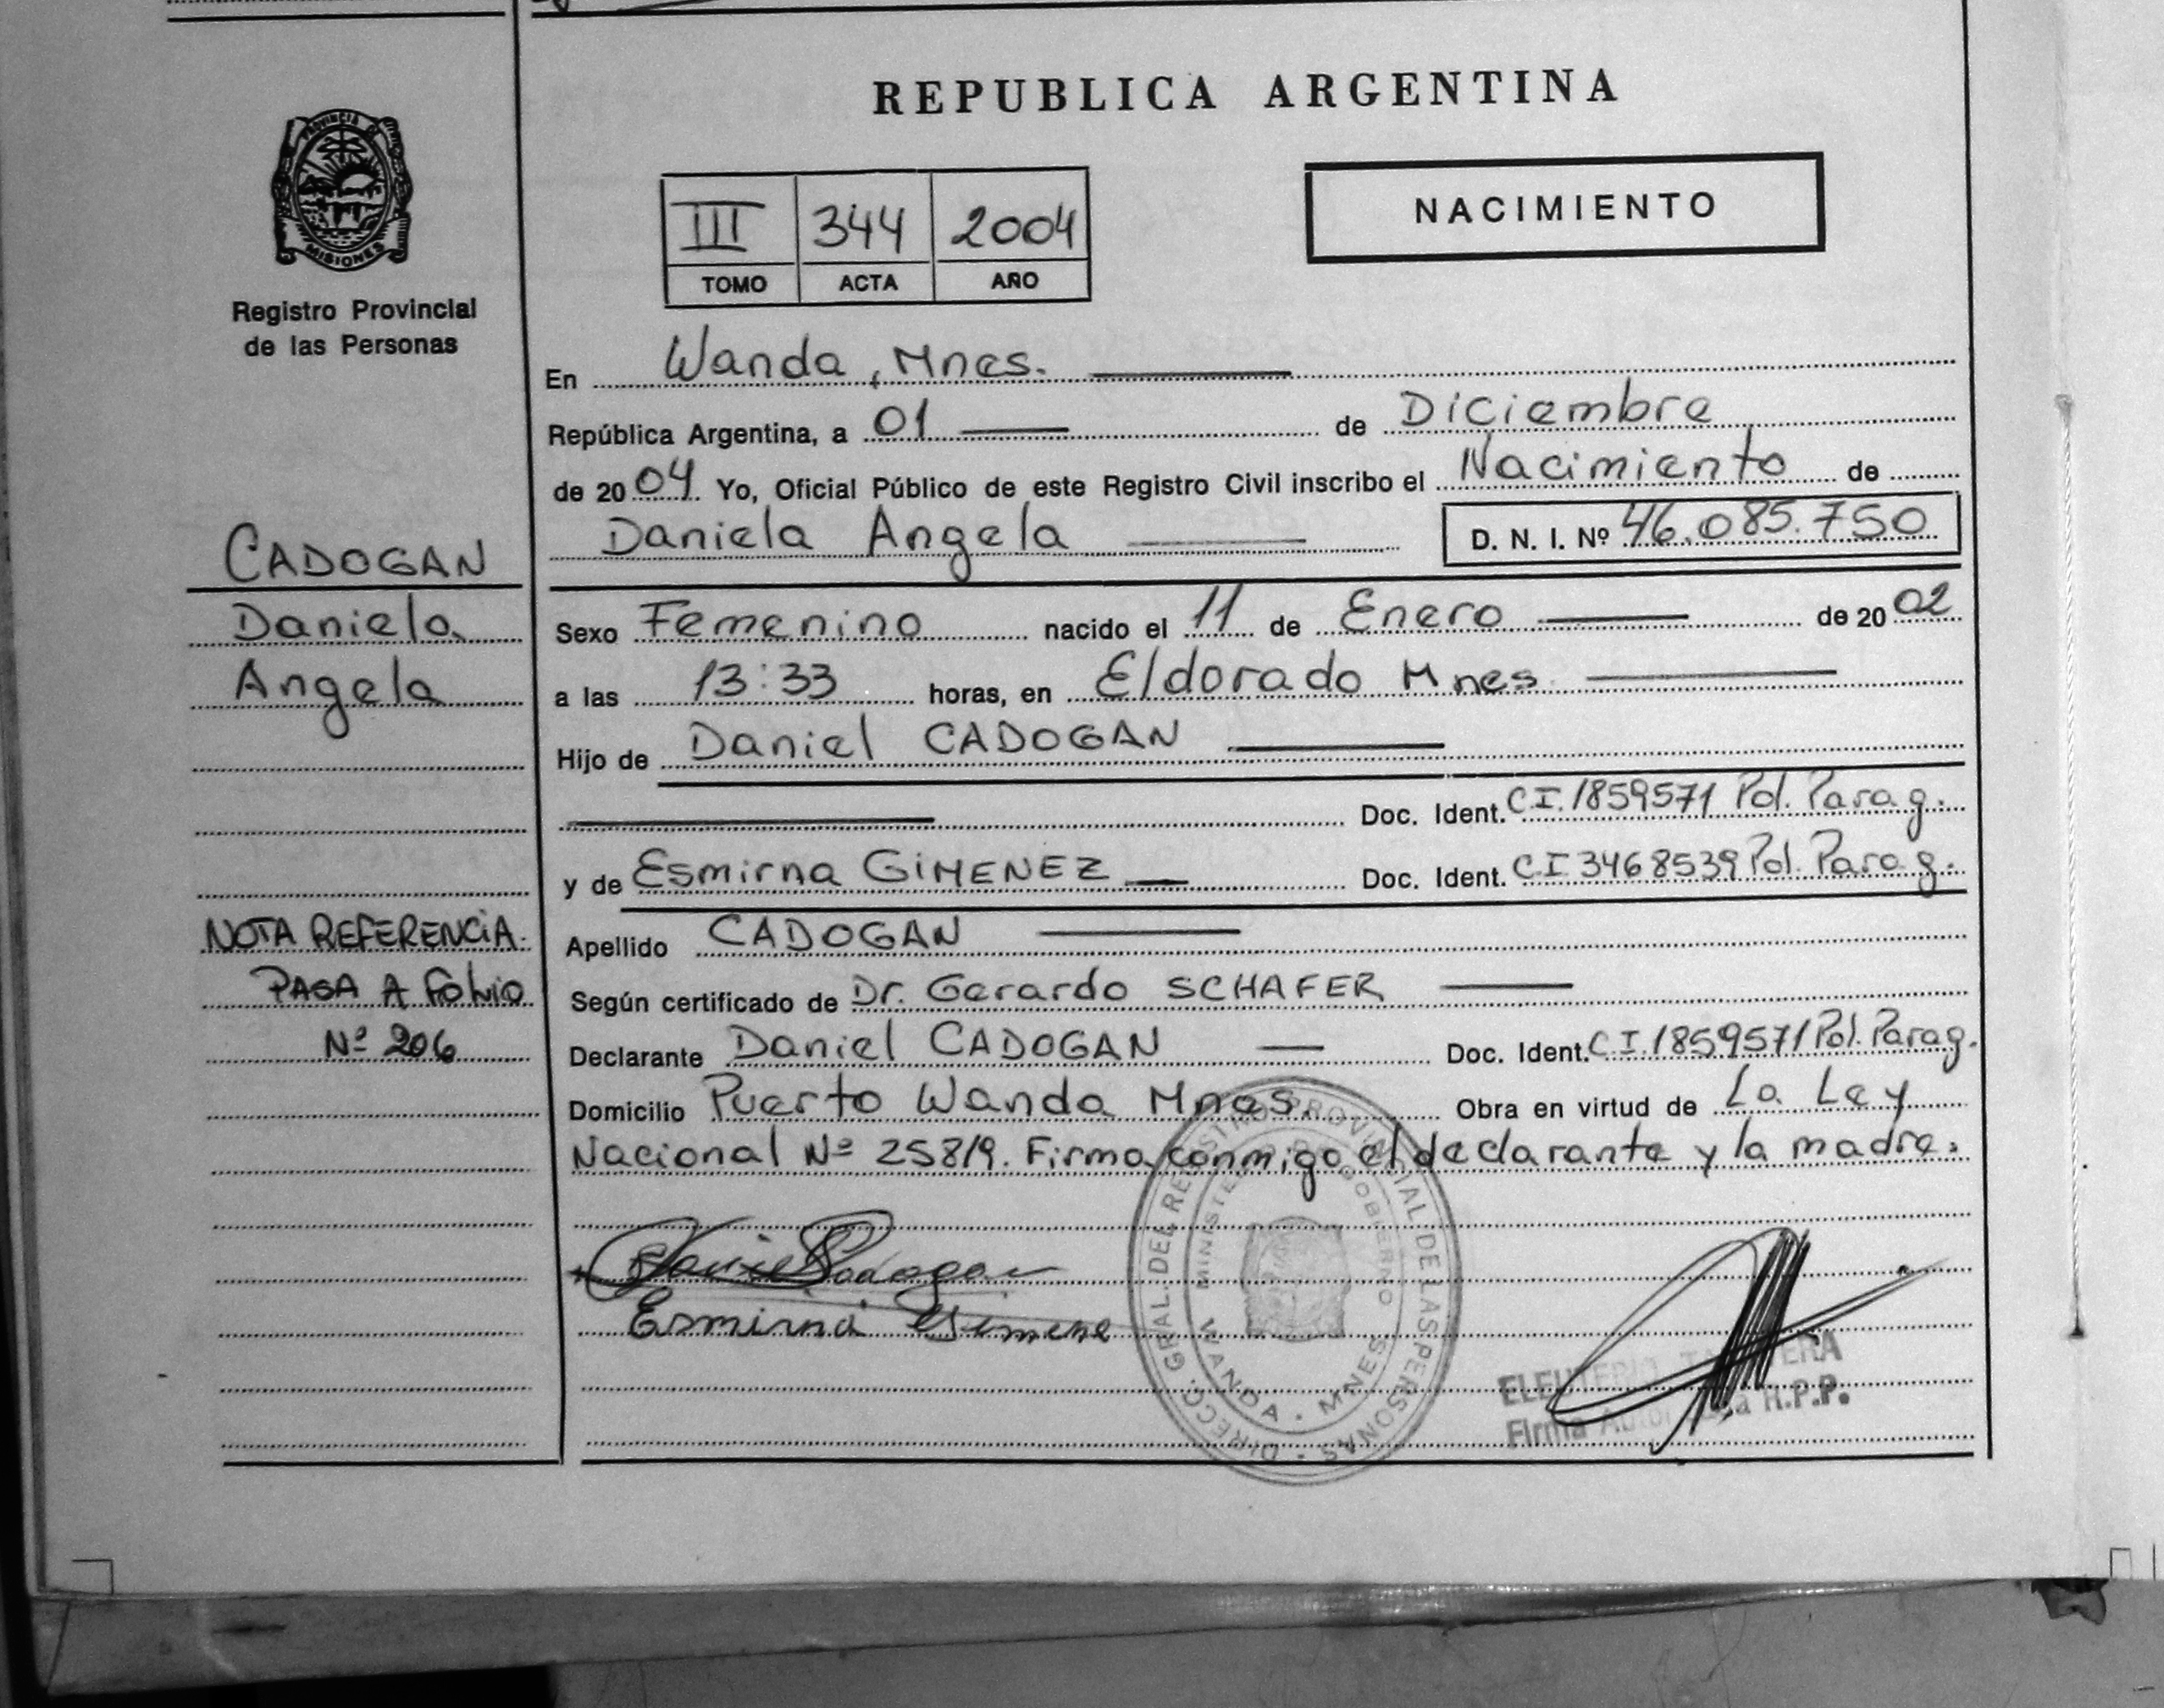 REPUBLICA ARGENTINA
PROVINCIA DE
MISIONES
Registro Provincial
de las Personas
III 344 2004
TOMO ACTA AÑO
NACIMIENTO
En Wanda, Mnes.
República Argentina, a 01 de Diciembre
de 2004. Yo, Oficial Público de este Registro Civil inscribo el Nacimiento de
Daniela Angela D. N. I. Nº 46.085.750
CADOGAN
Daniela
Angela
Sexo Femenino nacido el 11 de Enero de 2002
a las 13:33 horas, en Eldorado Mnes
Hijo de Daniel CADOGAN
Doc. Ident. C.I. 1859571 Pol. Parag.
y de Esmirna GIMENEZ Doc. Ident. C.I 3468539 Pol. Parag.
NOTA REFERENCIA.
PASA A FOLIO
Nº 206
Apellido CADOGAN
Según certificado de Dr. Gerardo SCHAFER
Declarante Daniel CADOGAN Doc. Ident. C.I. 1859571 Pol. Parag.
Domicilio Puerto Wanda Mnes. Obra en virtud de La Ley
Nacional Nº 25819. Firma conmigo el declarante y la madre.
Daniel Cadogan
Esmirna Gimene
DIRECC. GRAL. DEL REGISTRO PROVINCIAL DE LAS PERSONAS
MINISTERIO DE GOBIERNO
WANDA - MNES
Firma R.P.P.